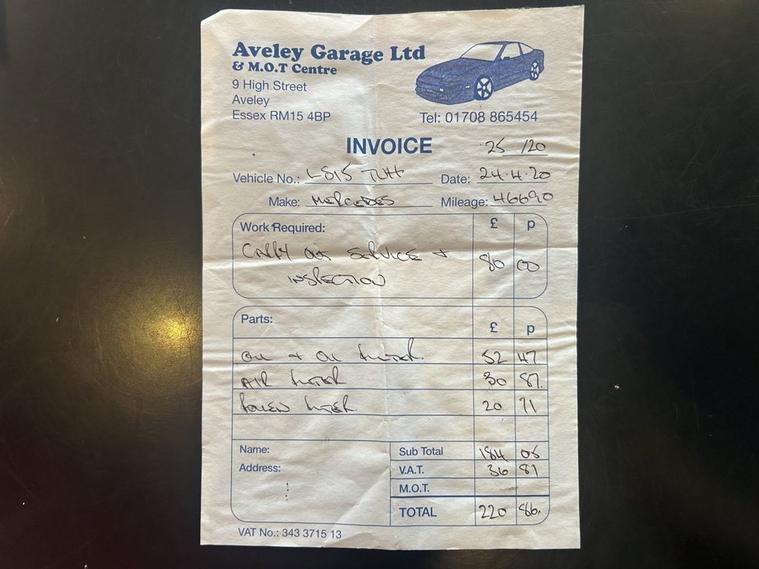 Aveley Garage Ltd
& M.O.T Centre
9 High Street
Aveley
Essex RM15 4BP
Tel: 01708 865454
INVOICE 25 /20
Vehicle No.: LS15 TUH Date: 24.4.20
Make: MERCEDES Mileage: 46690
Work Required: £ p
CARRY OUT SERVICE + 80 00
INSPECTION
Parts: £ p
OIL + OIL FILTER 52 47
AIR FILTER 30 87
POLLEN FILTER 20 71
Name: Sub Total 184 05
Address: V.A.T. 36 81
M.O.T.
TOTAL 220 86
VAT No.: 343 3715 13